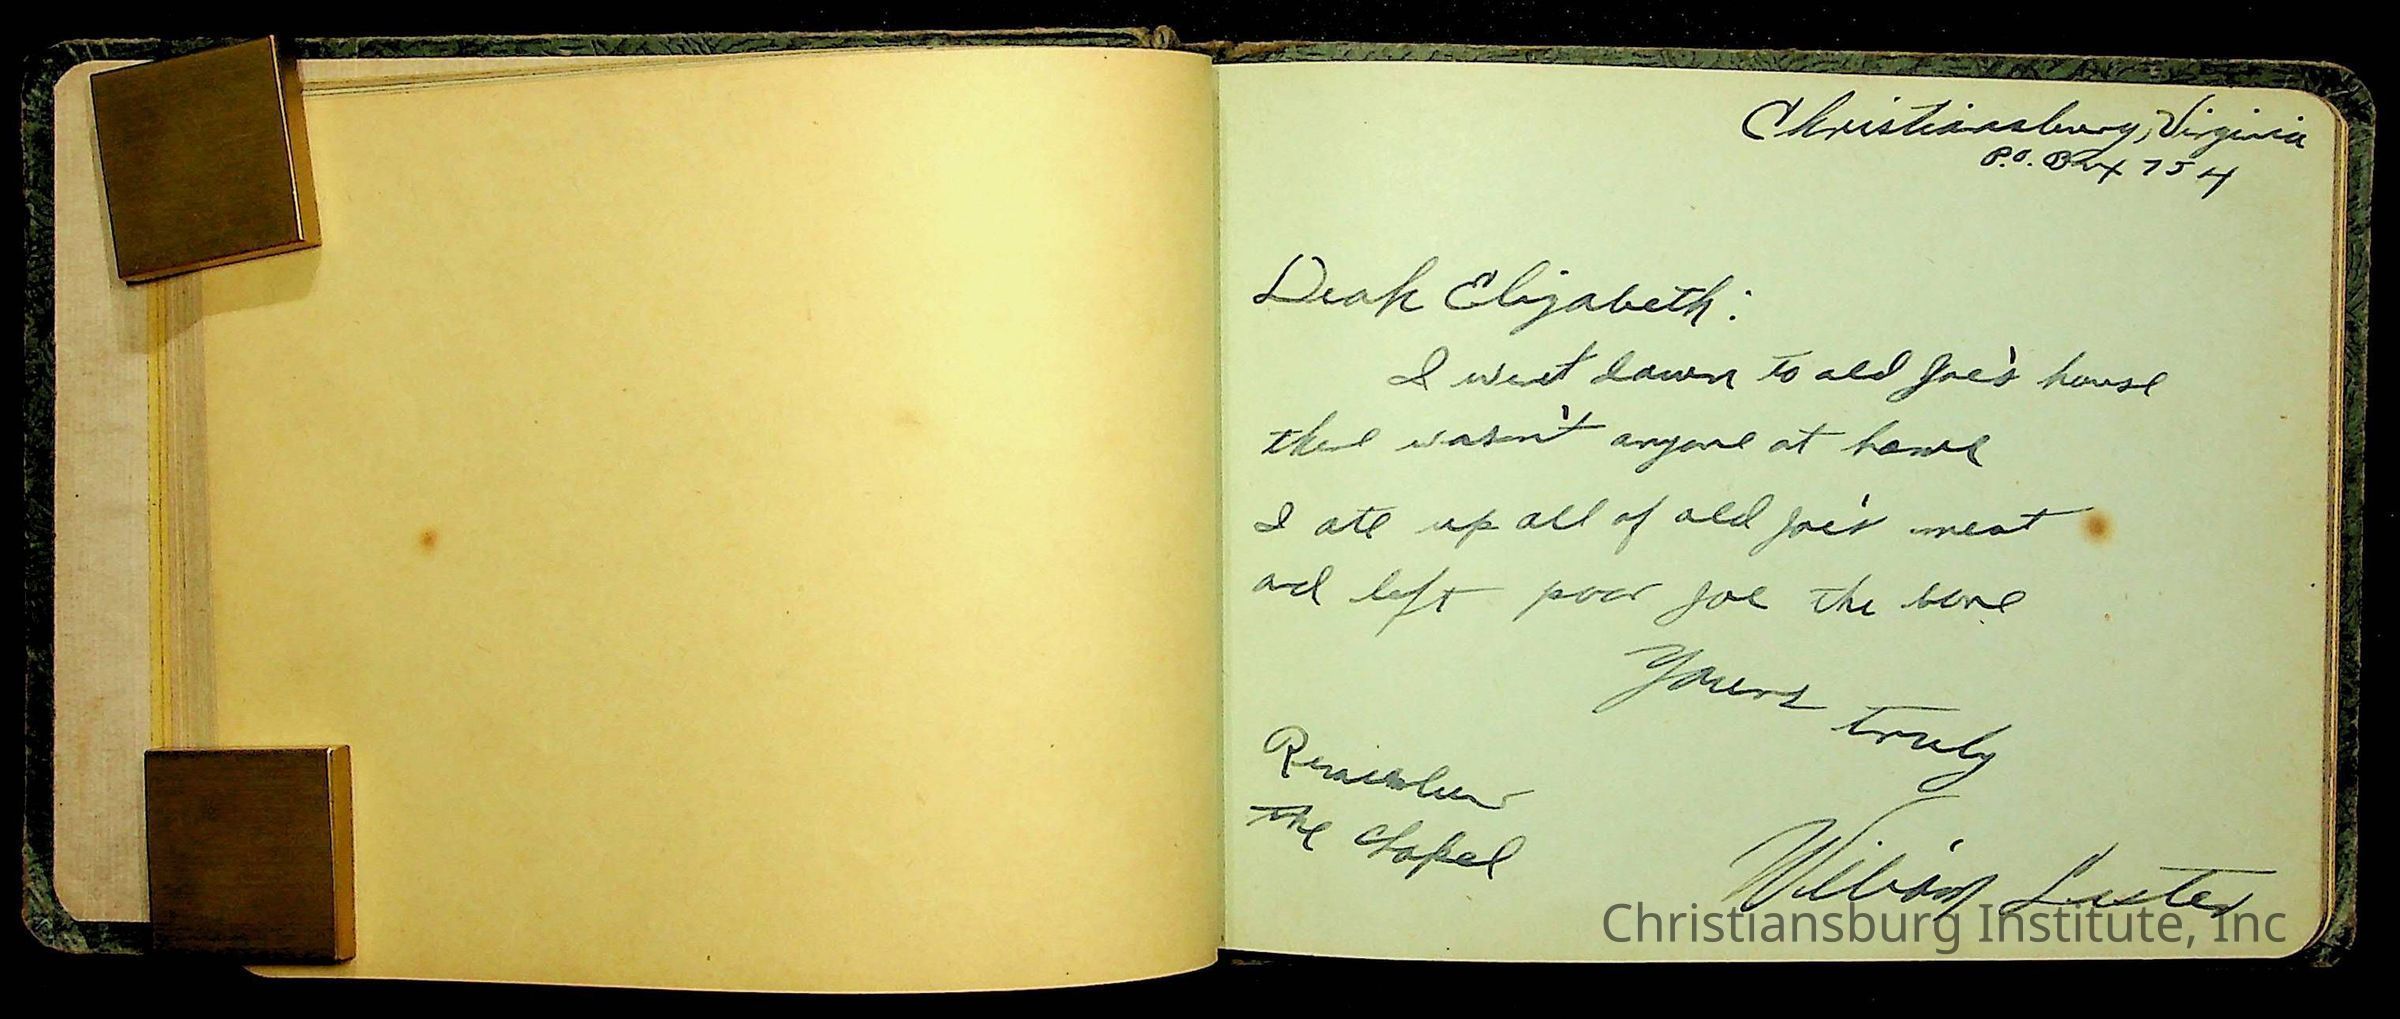 Christiansburg, Virginia
P.O. Box 754
Dear Elizabeth:
I went down to old Joe's house
there wasn't anyone at home
I ate up all of old Joe's meat
and left poor Joe the bone
Yours truly
Remember
the chapel
William Lester
Christiansburg Institute, Inc